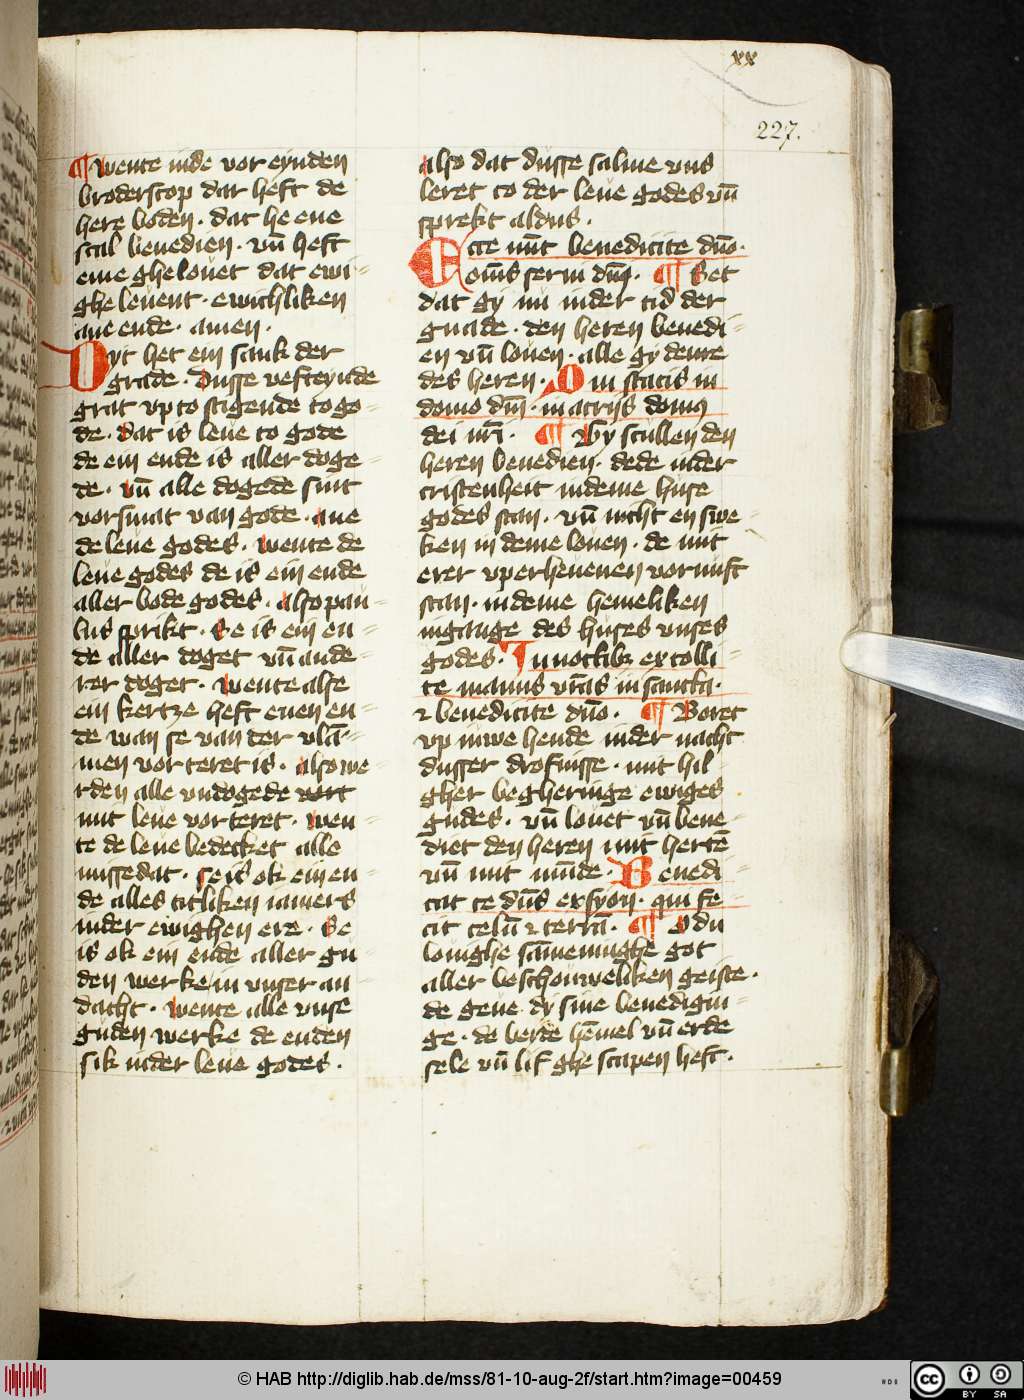 xx
227.
¶ wente inde vor eynden
broderscop dar heft de
here boden · dat he ene
scal benedien · vn̄ heft
eme ghelouet dat ewi-
ghe leuent · ewichliken
ane ende · amen ·
Dyt het ein sank der
grade · Dusse vefteynde
grat vp to stigende to go-
de · dat is leue to gode
de ein ende is aller doge-
de · vn̄ alle dogede sint
vorsmat van gode · ane
de leue godes · wente de
leue godes de is ein ende
aller bode godes · also pau-
lus sprikt · Se is ein en-
de aller doget vn̄ ande-
rer doget · wente alse
ein kertze heft enen en-
de wan se van der vlā-
men vorteret is · also we-
rden alle vndogede vort
mit leue vorteret · wen-
te de leue bedecket alle
missedat · se is ok ein en-
de alles titliken iamers
inder ewighen ere · Se
is ok ein ende aller gu-
den werke in vnser an-
dacht · wente alle vnse
guden werke de enden
sik inder leue godes ·
also dat dusse salme vns
leret to der leue godes vn̄
sprekt aldus ·
Ecce nūt benedicite dn̄o ·
om̄s serui dn̄i · ¶ Set
dat gy nu inder tid der
gnade · den heren benedi-
en vn̄ louen · alle gy denre
des heren · Qui statis in
domo dn̄i · in atrijs domꝯ
dei nr̄i · ¶ Gy scullen den
heren benedien · dede inder
cristenheit in deme huse
godes stan · vn̄ nicht en swe-
ken in deme louen · de mit
erer vperheuenen vornuft
stan · in deme hemeliken
ingange des huses vnses
godes · In noctibꝫ extolli-
te manus vr̄as in sancta ·
⁊ benedicite dn̄o · ¶ Boret
vp iuwe hende inder nacht
dusser drofnisse · mit hil-
gher begheringe ewiges
gudes · vn̄ louet vn̄ bene-
diet den heren mit hertē
vn̄ mit mūde · Benedi-
cat te dn̄s ex syon · qui fe-
cit celū ⁊ terrā · ¶ O du
loui­ghe sāmeninghe got
aller beschouweliken geiste ·
de geue dy sine benedigin-
ge · de berde hēmel vn̄ erde
sele vn̄ lif ghe scapen heft ·
© HAB http://diglib.hab.de/mss/81-10-aug-2f/start.htm?image=00459
cc BY SA